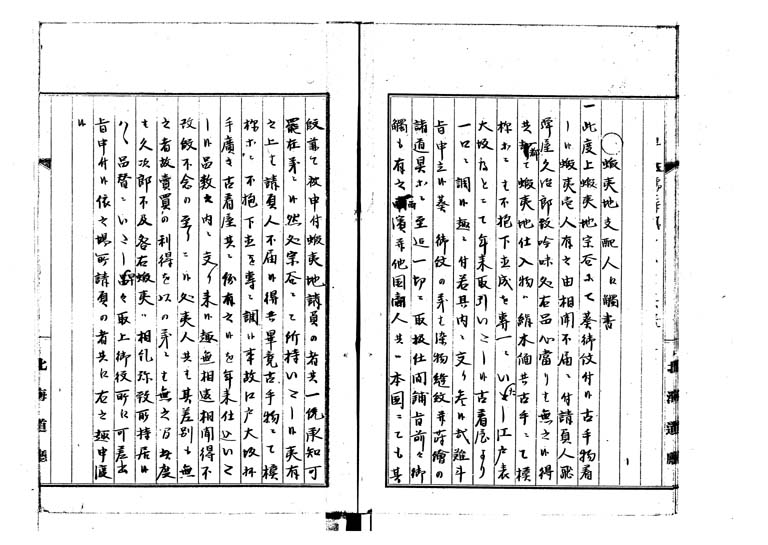 ○蝦夷地支配人江觸書
一此度上蝦夷地宗谷ニ而葵御紋付候古手物着
し候蝦夷壱人有之由相聞不届ニ付請負人
屋久次郎致吟味処右品心當りも無之候得
共都而蝦夷地仕入物ハ絹木綿共古手ニ而模
様等ニも不抱下直成を専一ニいたし江戸表
大坂なとニ而年来取引いたし候古着屋より
一口ニ調候趣ニ付若其内ニ交り参候哉難斗
旨申立候葵御紋の弄も染物縫紋并蒔繪の
諸道具等ニ至迄一切ニ取扱仕間鋪旨前々御
觸も有之而濱并他国商人共ハ本国ニても其
段篤而被申付蝦夷地請負の者共一統承知可
罷在弄ニ候然処宗谷ニ而所持いたし候夷有
之上ハ請負人不届候得共畢竟古手物ニ而模
様等ニ不抱下直を専ニ調候事故江戸大坂抔
手廣き古着屋共ニ紛有之候を年来仕込いた
し候品数之内ニ交り来候趣無相違相聞得不
改段不念の至ニ候処夷人共も其差別も無
之者故賣買の利得を以の弄ニも無之ニ付此度
も久次郎不及咎右蝦夷ハ相乱弥致所持居候
ハゝ品替ニいたし早々取上御役所江可差出
旨申付候依之場所請負の者共江右之趣申渡
候
北海道廳
北海道廳